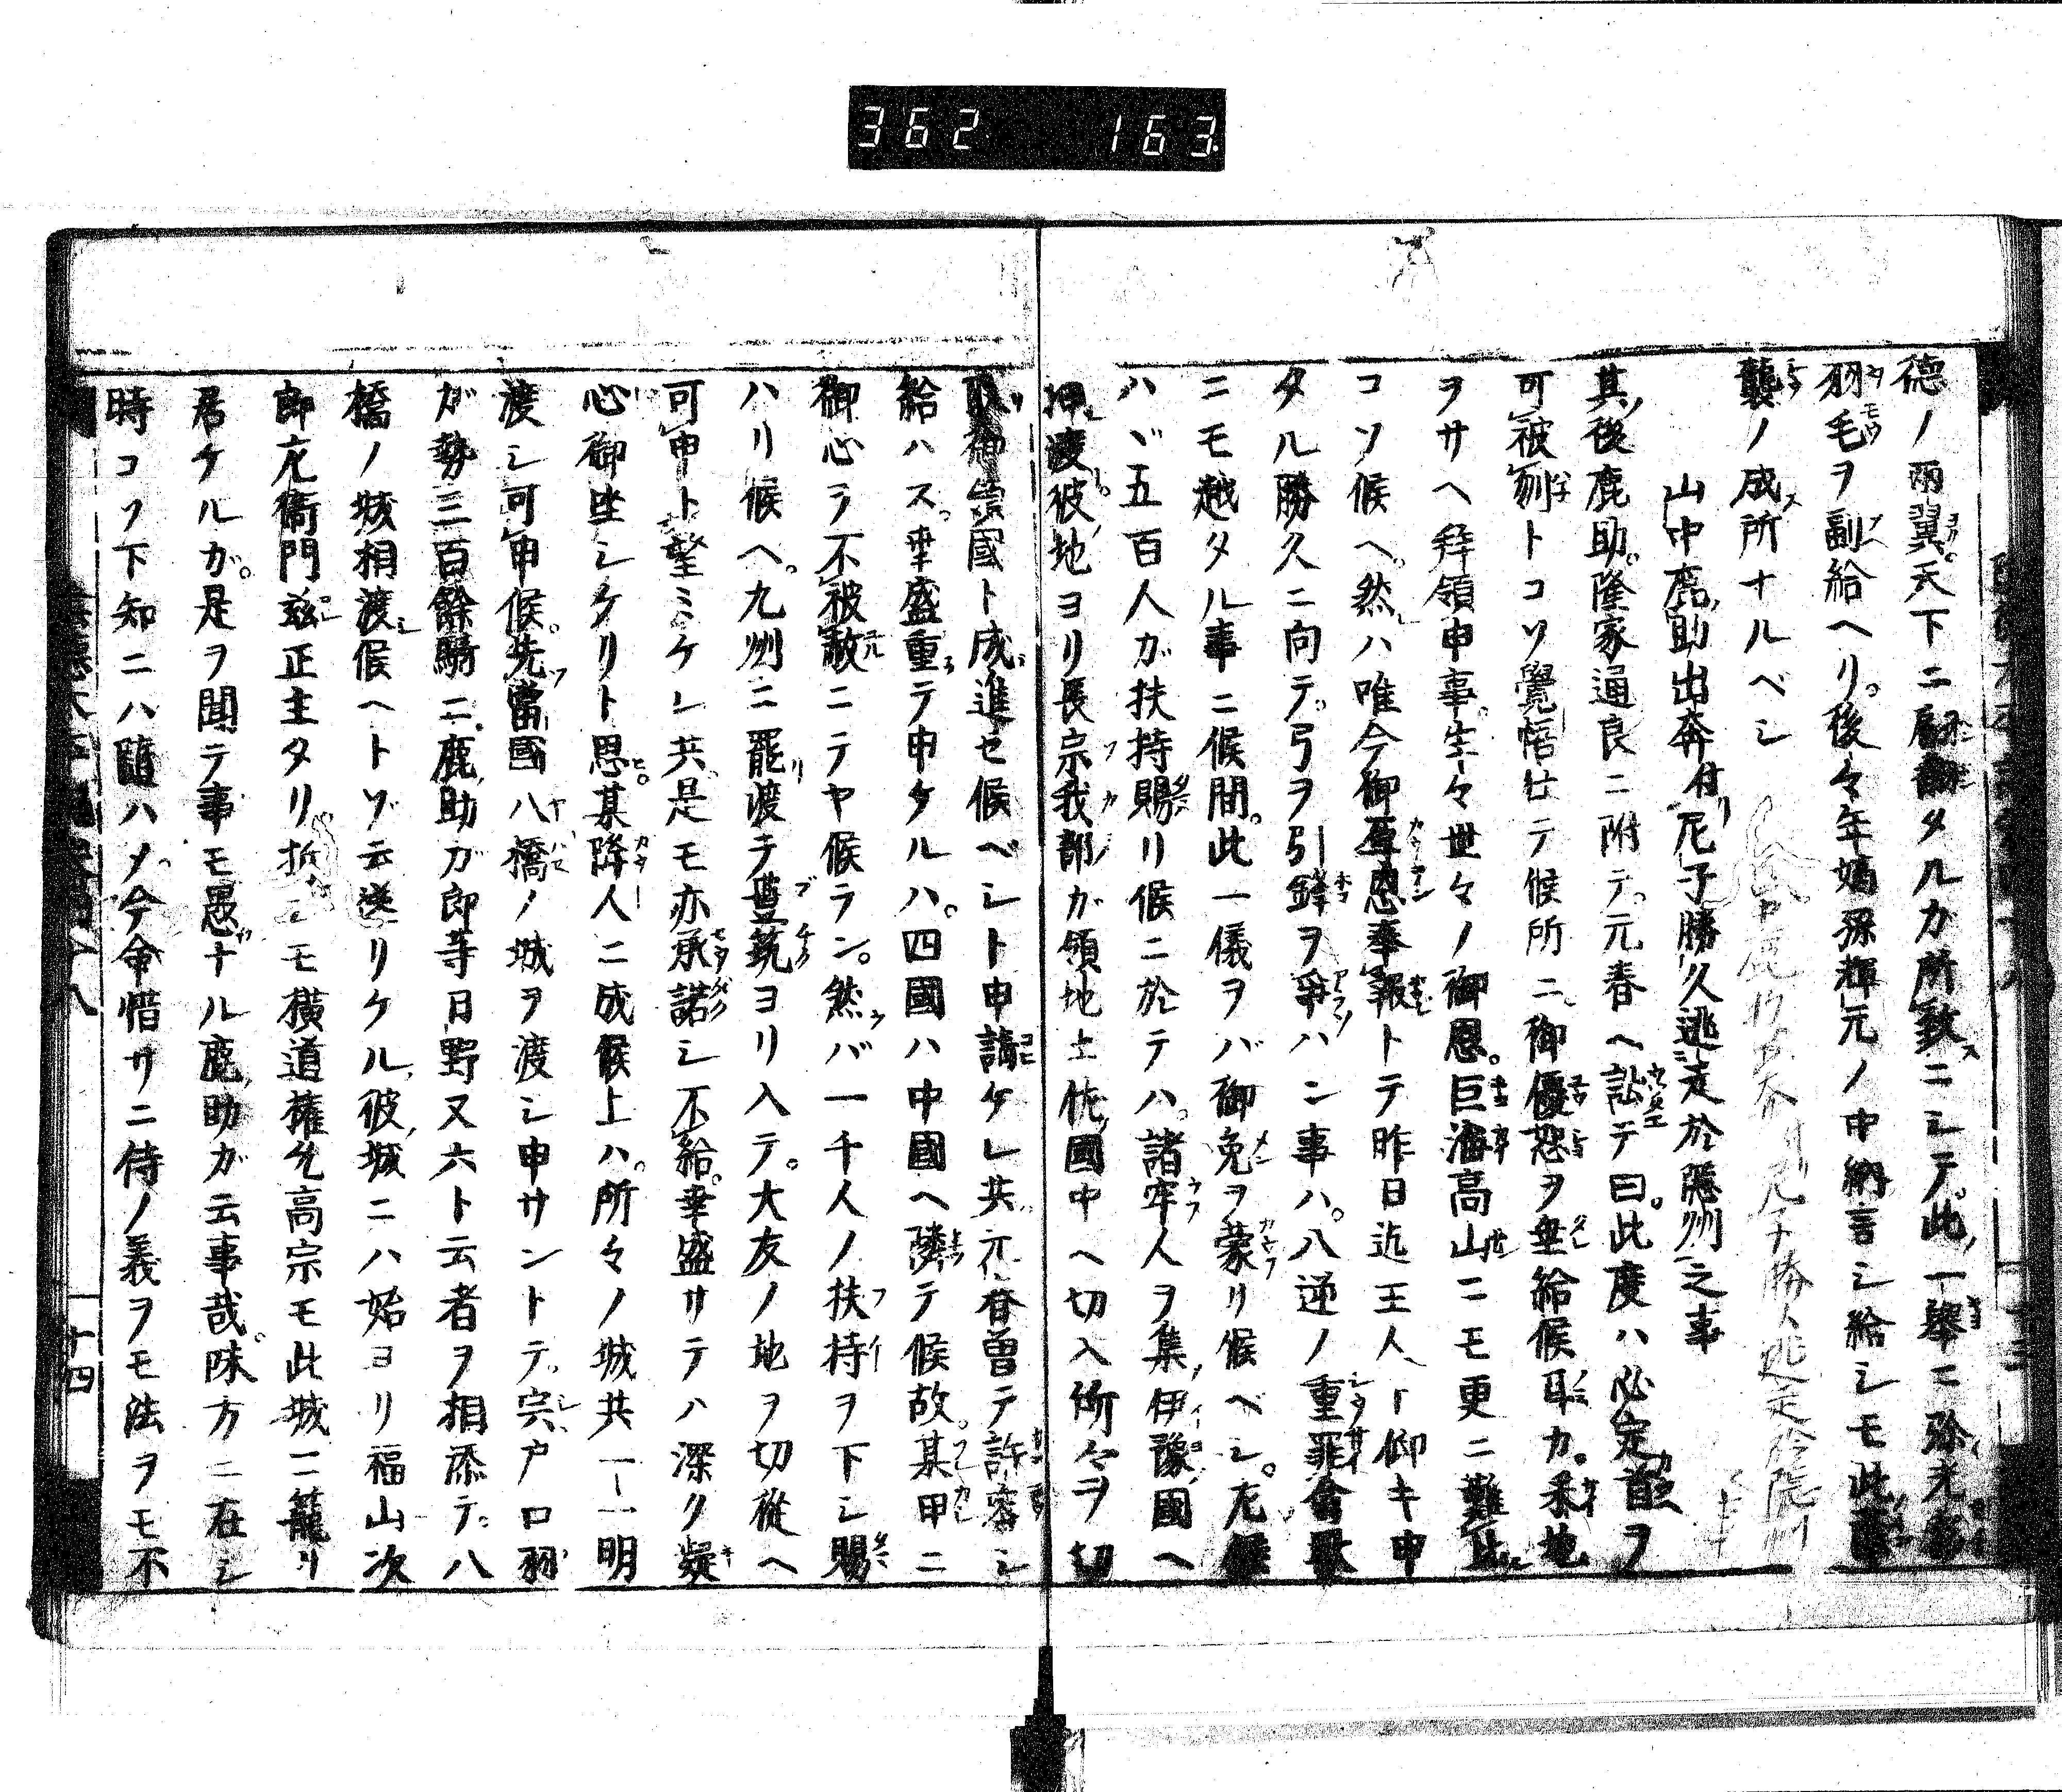 362 163
德ノ兩翼天下ニ扇翻タルカ所致ニシテ此一擧ニ弥光
羽毛ヲ副給ヘリ後々年嫡孫輝元ノ中納言シ給シモ此
襲ノ成所ナルベシ
山中鹿助出奔付尼子勝久逃走於隱州之事
其後鹿助隆家通良ニ附テ元春ヘ訟テ曰此度ハ必定首ヲ
可被刎トコソ覺悟仕テ候所ニ御優恕ヲ垂給候耳カ釆地
ヲサヘ拜領申事生々世々ノ御恩巨海高山ニモ更ニ難比
コソ候ヘ然ハ唯今御厚恩奉報トテ昨日迄王人ト仰キ申
タル勝久ニ向テ弓ヲ引鋒ヲ爭ハン事ハ八逆ノ重罪
ニモ越タル事ニ候間此一儀ヲバ御免ヲ蒙リ候ベシ左候
ハヾ五百人ガ扶持賜リ候ニ於テハ諸牢人ヲ集伊豫國ヘ
押渡彼地ヨリ長宗我部ガ領地土佐國中ヘ切入所々ヲ切
取御分國ト成進セ候ベシト申請ケレ共元春曽テ許容シ
給ハス幸盛重テ申ケルハ四國ハ中國ヘ隣テ候故某甲ニ
御心ヲ不被散ニテヤ候ラン然バ一千人ノ扶持ヲ下シ賜
ハリ候ヘ九州ニ罷渡テ豊筑ヨリ入テ大友ノ地ヲ切從ヘ
可申ト望ミケレ共是モ亦承諾シ不給幸盛サテハ深ク疑
心御坐シケリト思某降人ニ成候上ハ所々ノ城共一一明
渡シ可申候先當國八橋ノ城ヲ渡シ申サントテ宍戸口羽
ガ勢三百餘騎ニ鹿助ガ郎等日野又六ト云者ヲ相添テ八
橋ノ城相渡候ヘトゾ云送リケル彼城ニハ始ヨリ福山次
郎左衞門玆正主タリ折シモ横道權允高宗モ此城ニ籠リ
居ケルガ是ヲ聞テ事モ愚ナル鹿助ガ云事哉味方ニ在シ
時コソ下知ニハ隨ハメ今命惜サニ侍ノ義ヲモ法ヲモ不
十四